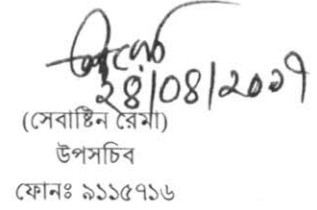 ২৪/০৪/২০১৭
(সেবাষ্টিন রেমা)
উপসচিব
ফোনঃ ৯১১৫৭১৬